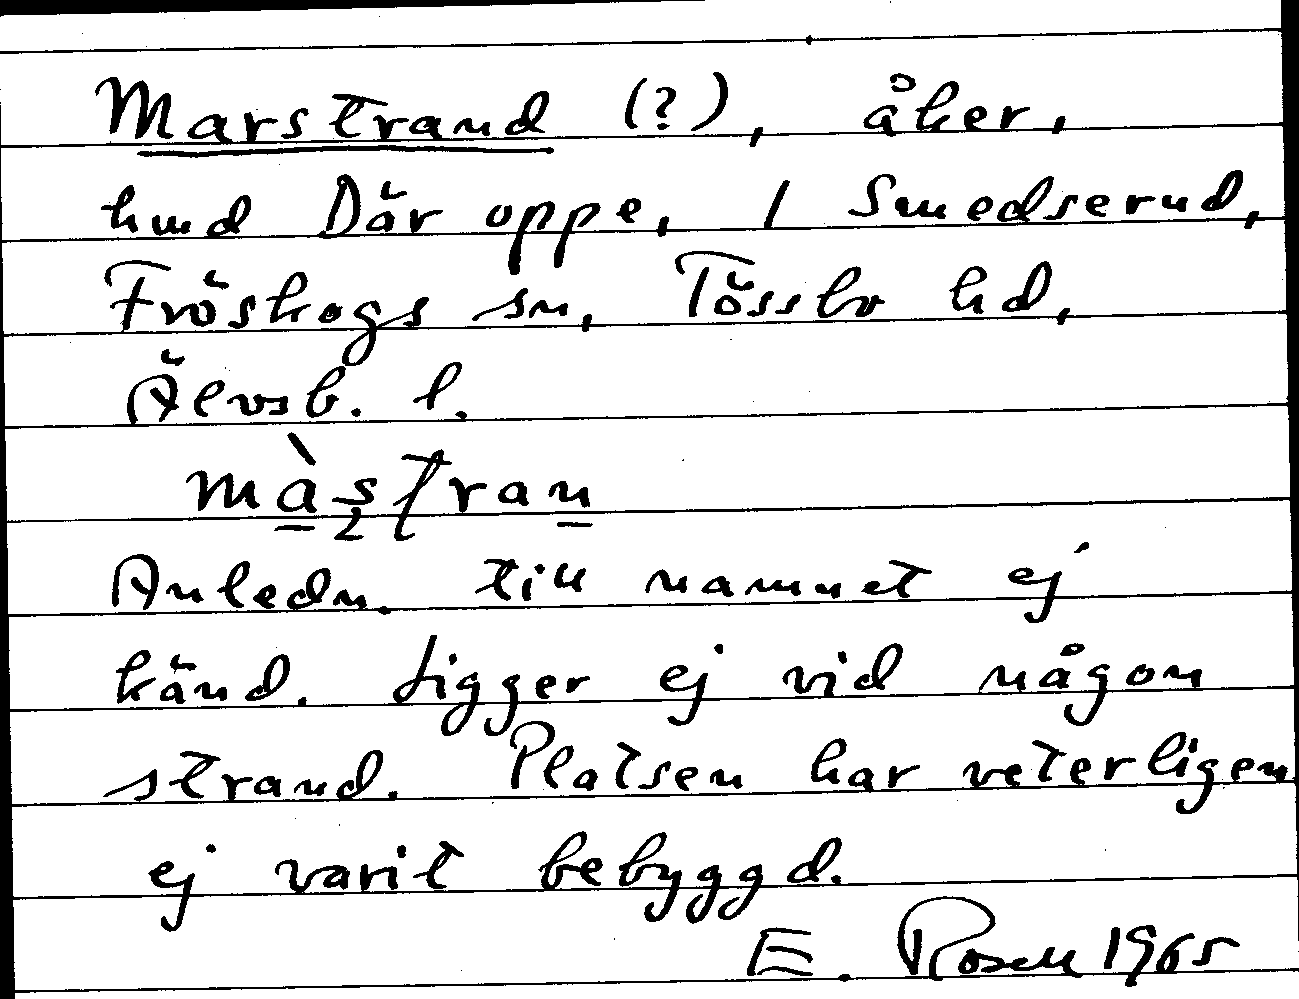 Marstrand (?), åker,
hmd Där oppe, 1 Smedserud,
Fröskogs sn, Tössbo hd,
Älvsb. l.
màstran
Anledn. till namnet ej
känd. Ligger ej vid någon
strand. Platsen har veterligen
ej varit bebyggd.
E. Rosell 1965